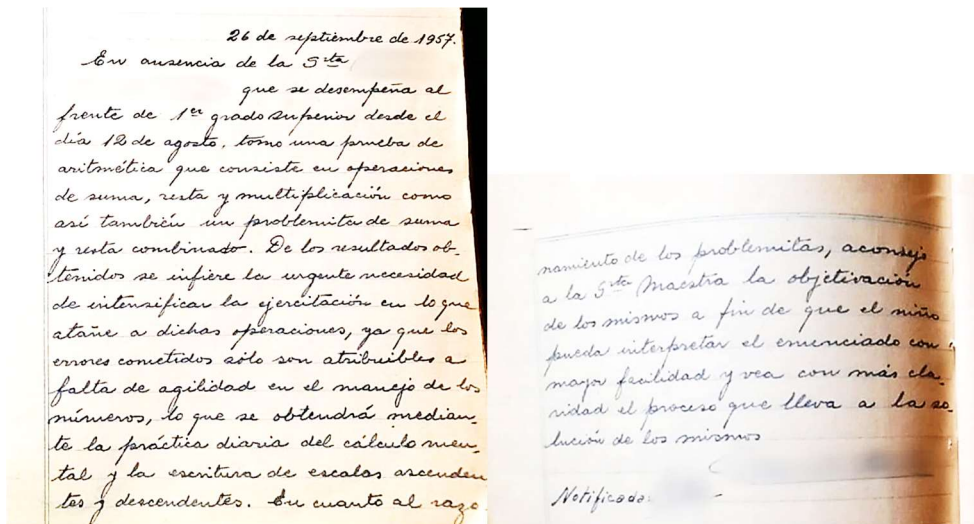 26 de septiembre de 1957.
En ausencia de la Sta
que se desempeña al
frente de 1er grado superior desde el
día 12 de agosto, tomo una prueba de
aritmética que consiste en operaciones
de suma, resta y multiplicación como
así también un problemita de suma
y resta combinado. De los resultados ob-
tenidos se infiere la urgente necesidad
de intensificar la ejercitación en lo que
atañe a dichas operaciones, ya que los
errores cometidos sólo son atribuibles a
falta de agilidad en el manejo de los
números, lo que se obtendrá median-
te la práctica diaria del cálculo men-
tal y la escritura de escalas ascenden
tes y descendentes. En cuanto al razo
namiento de los problemitas, aconsejo
a la Sta Maestra la objetivación
de los mismos a fin de que el niño
pueda interpretar el enunciado con
mayor facilidad y vea con más cla-
ridad el proceso que lleva a la so-
lución de los mismos
Notificada: